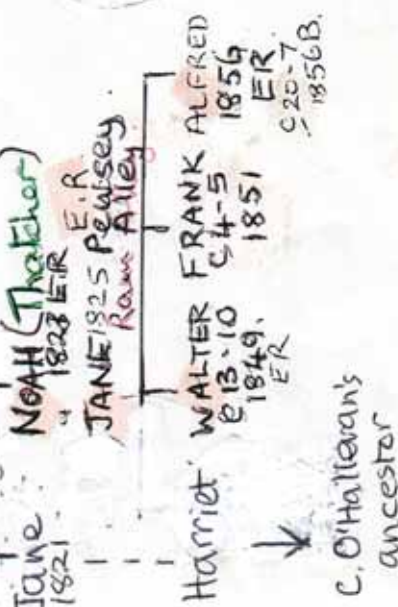 Jane
1821
NOAH (Thatcher)
1823 E.R
JANE 1825 Pewsey E.R
Ram Alley
Harriet
WALTER
C 13-10
1849.
ER
FRANK
C 4-5
1851
ALFRED
1856
ER
C 20-7
1856 B.
C. O'Hallevan's
ancestor